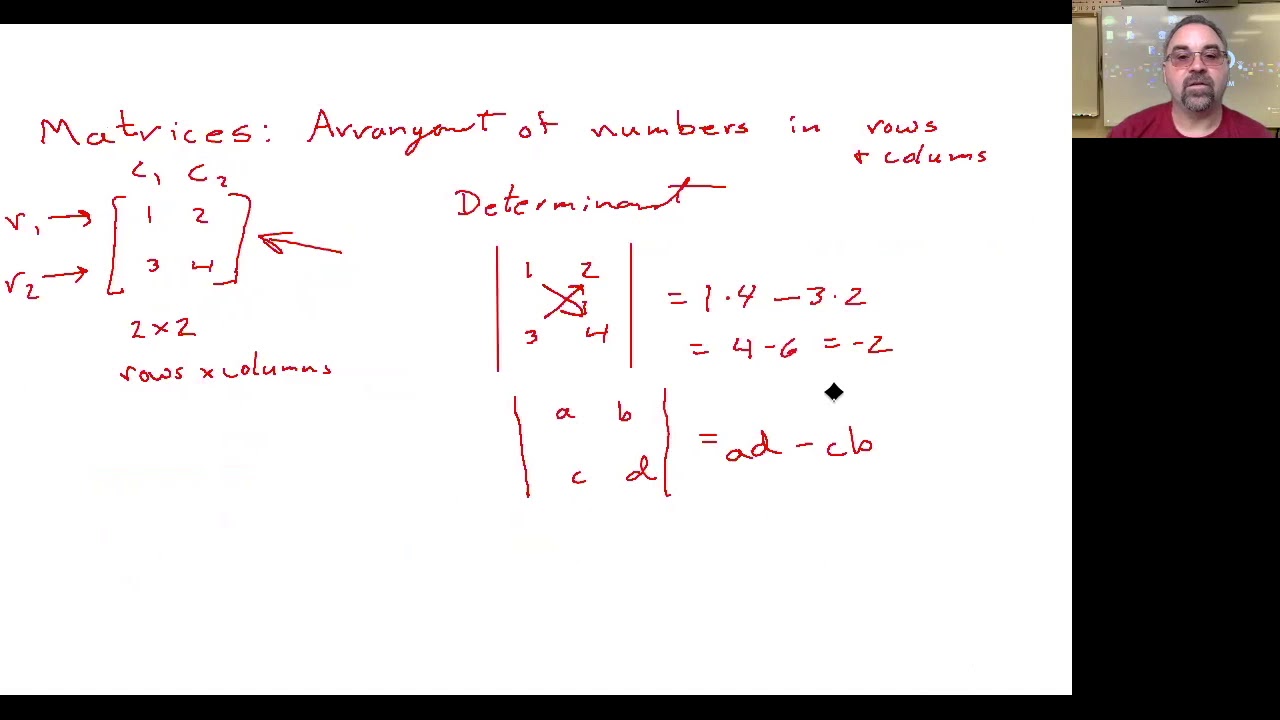 Matrices: Arrangment of numbers in rows
+ colums
C₁ C₂
r₁ → [ 1 2
r₂ → 3 4 ]
2 × 2
rows × columns
Determinant
| 1 2 |
| 3 4 |
= 1 · 4 — 3 · 2
= 4 - 6 = -2
| a b |
| c d |
= ad - cb